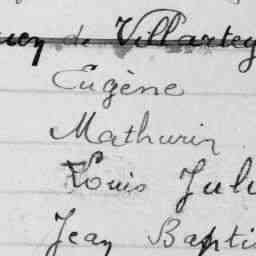 de Villartey
Eugène
Mathurin
Louis Jul
Jean Bapti